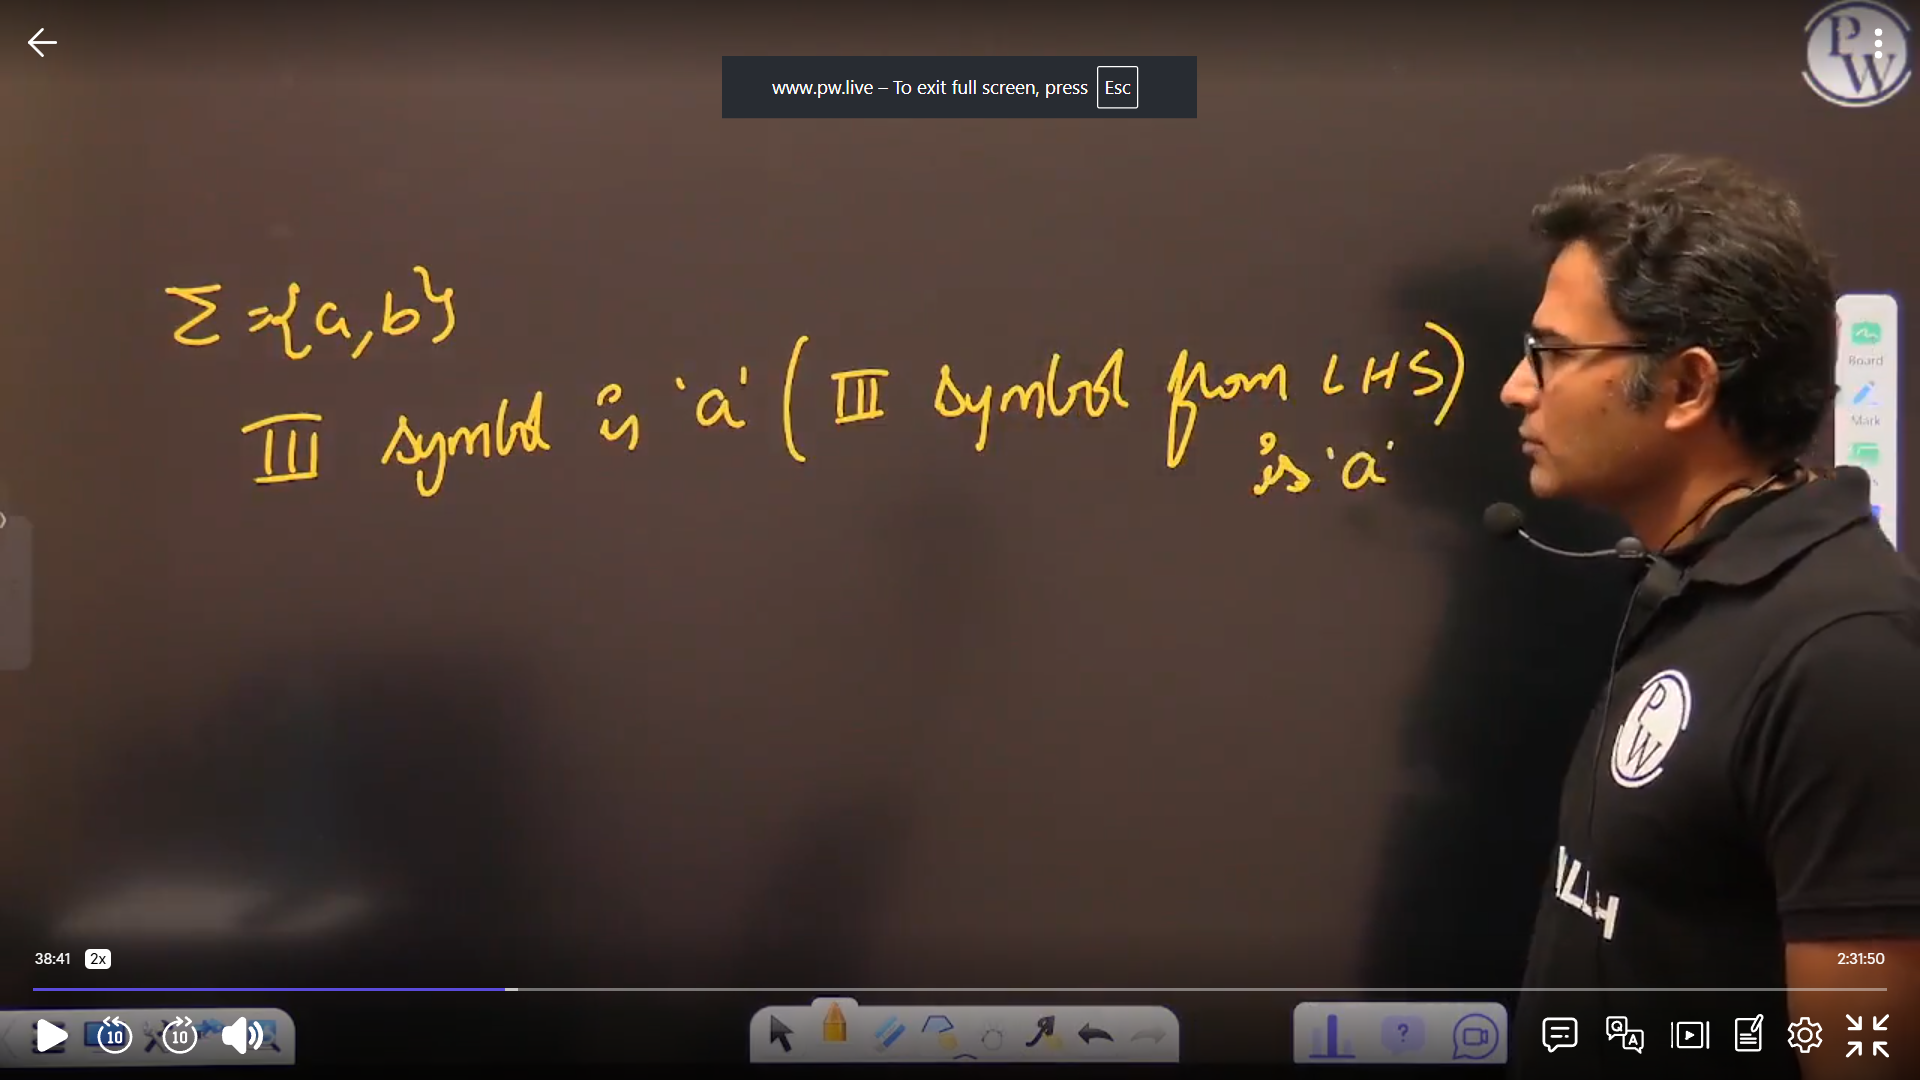 PW
www.pw.live – To exit full screen, press Esc
Σ={a,b}
III symbol is 'a' (III symbol from LHS)
is 'a'
Board
Mark
PW
38:41 2x
2:31:50
10 10